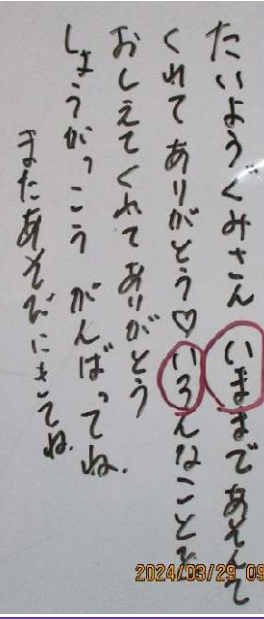 たいようぐみさん いままであそんで
くれてありがとう♡いろんなことを
おしえてくれてありがとう
しょうがっこう がんばってね.
またあそびにきてね.
2024/03/29 09